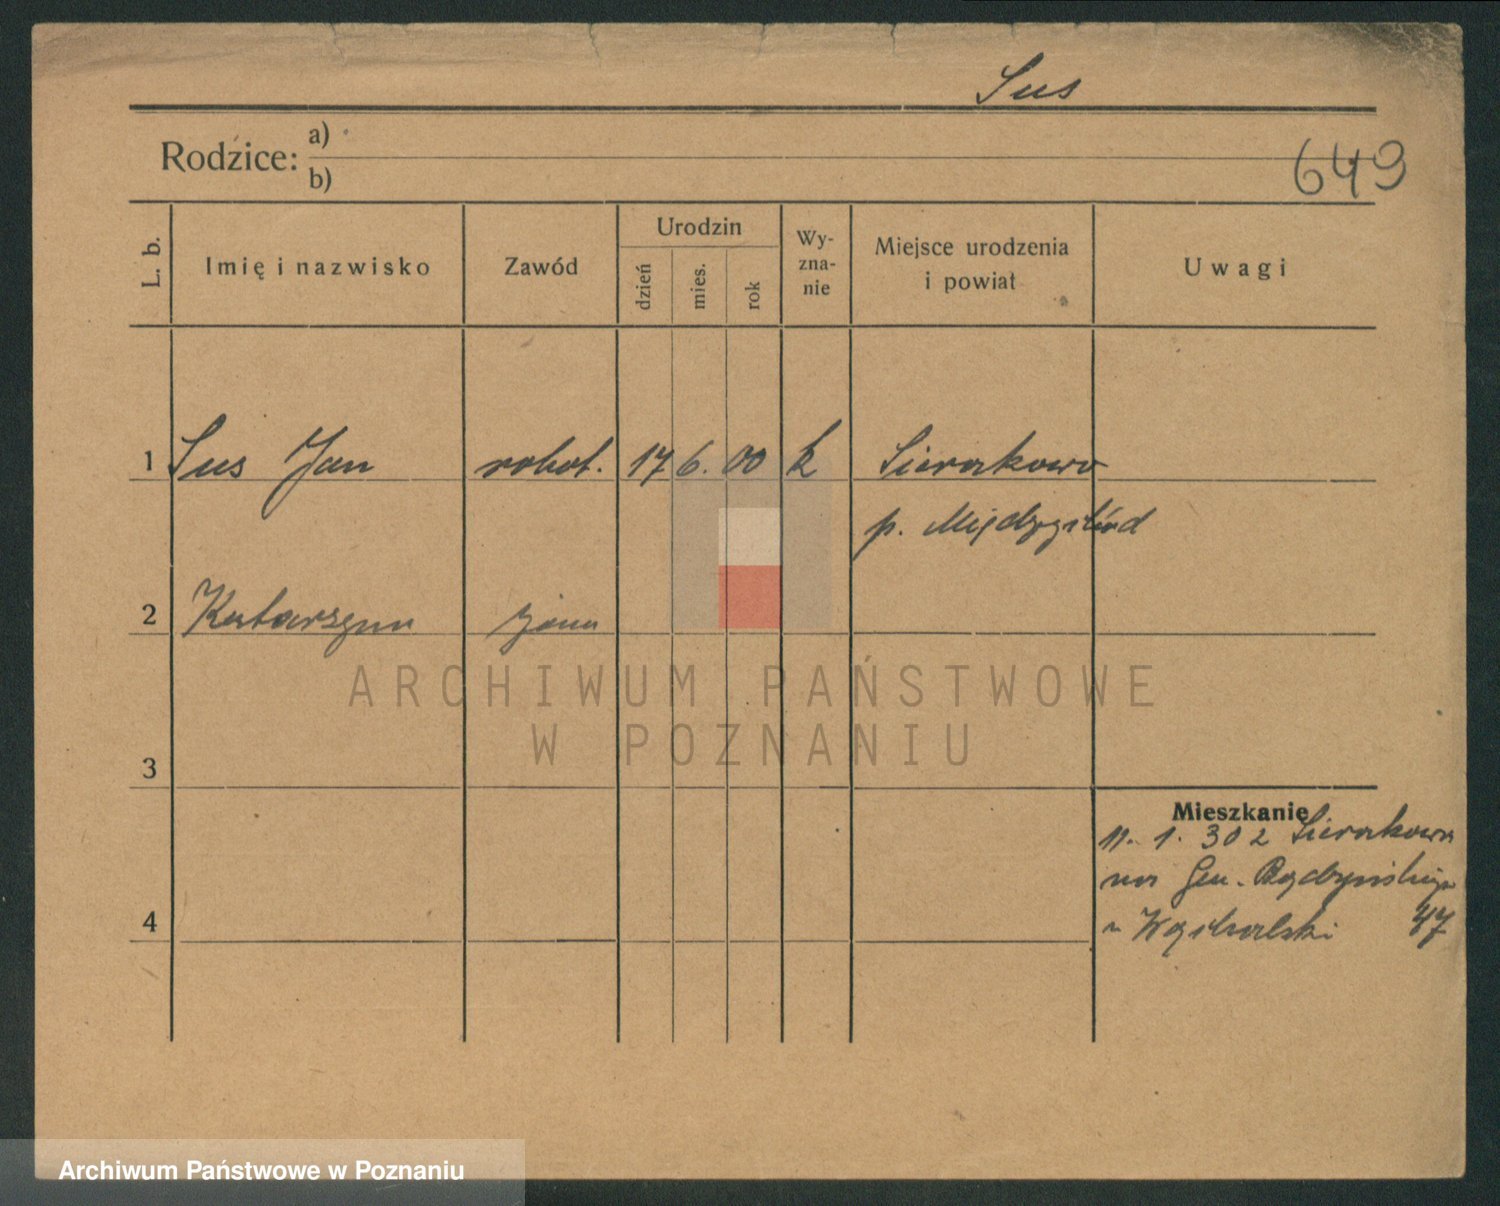 Sus
Rodzice: a)
b)
649
L. b.
Imię i nazwisko
Zawód
Urodzin
dzień
mies.
rok
Wy-
zna-
nie
Miejsce urodzenia
i powiat
Uwagi
1 Sus Jan robot. 17 6. 00 k Sierakowo
p. Międzychód
2 Katarzyna żona
ARCHIWUM PAŃSTWOWE
W POZNANIU
3
Mieszkanie
11. 1. 302 Sierakowa
na Gen.
4
47
Archiwum Państwowe w Poznaniu